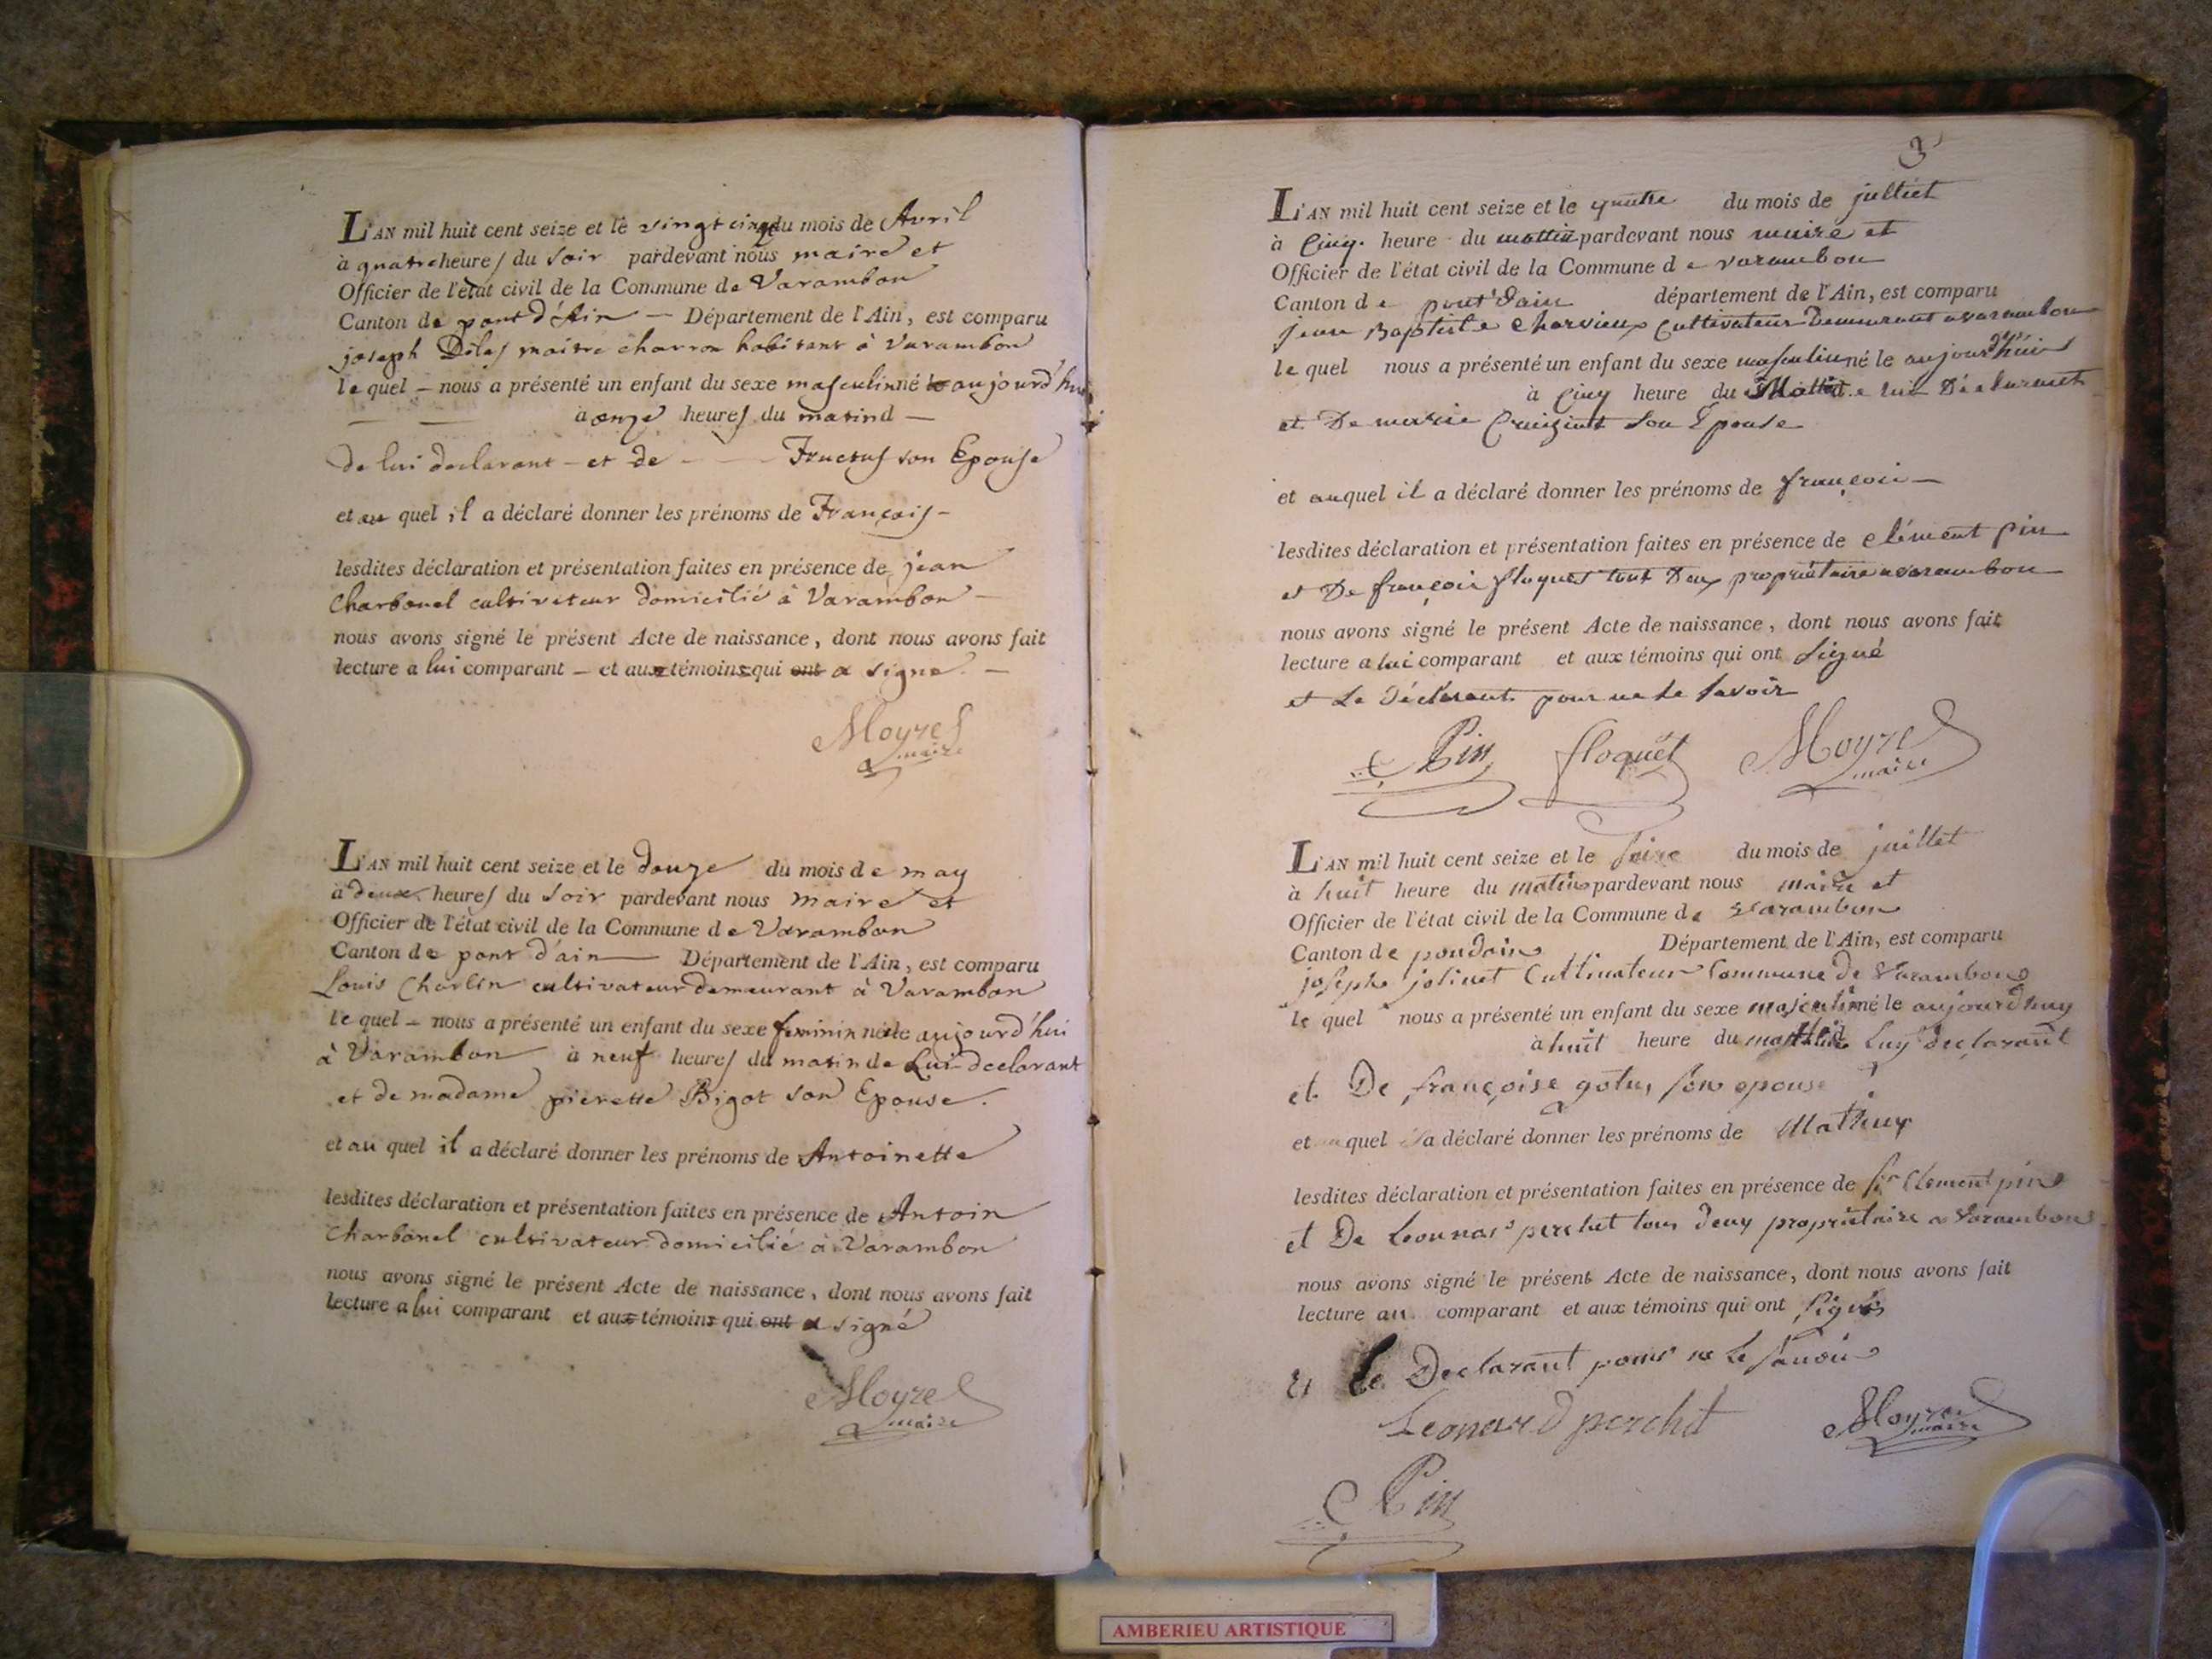 L'AN mil huit cent seize et le vingt cinq du mois de Avril
à quatre heures du soir pardevant nous maire et
Officier de l'état civil de la Commune de Varambon
Canton de pont d'Ain — Département de l'Ain, est comparu
joseph maitre charron habitant à Varambon
lequel — nous a présenté un enfant du sexe masculin né le aujourd'hui
à onze heures du matin d —
de lui declarant — et de — Fructus son Epouse
et au quel il a déclaré donner les prénoms de François —
lesdites déclaration et présentation faites en présence de jean
Charbonel cultivateur domicilié à Varambon —
nous avons signé le présent Acte de naissance, dont nous avons fait
lecture a lui comparant — et aux témoins qui ont a signé. —
Moyret
maire
L'AN mil huit cent seize et le douze du mois de may
à deux heures du soir pardevant nous maire et
Officier de l'état civil de la Commune de Varambon
Canton de pont d'ain — Département de l'Ain, est comparu
Louis Charlin cultivateur demeurant à Varambon
lequel — nous a présenté un enfant du sexe feminin née le aujourd'hui
à Varambon à neuf heures du matin de Lui declarant
et de madame pierette Bigot son Epouse.
et au quel il a déclaré donner les prénoms de Antoinette
lesdites déclaration et présentation faites en présence de Antoin
Charbonel cultivateur domicilié à Varambon
nous avons signé le présent Acte de naissance, dont nous avons fait
lecture a lui comparant et aux témoins qui ont a signé
Moyret
maire
3
L'AN mil huit cent seize et le quatre du mois de julliet
à Cinq heure du mattin pardevant nous maire et
Officier de l'état civil de la Commune de varambon
Canton de pont d'ain département de l'Ain, est comparu
jean Baptiste Charvieux Cultivateur Demeurant a varambon
lequel nous a présenté un enfant du sexe masculin né le aujourd'hui
à Cinq heure du Mattin de lui Déclarant
et De marie son Epouse
et auquel il a déclaré donner les prénoms de françois —
lesdites déclaration et présentation faites en présence de clément pin
et De françois floquet tout Deux propriétaire a varambon
nous avons signé le présent Acte de naissance, dont nous avons fait
lecture a lui comparant et aux témoins qui ont signé
et Le Déclarant pour ne le savoir
Pin floquet Moyret
maire
L'AN mil huit cent seize et le seize du mois de juillet
à huit heure du matin pardevant nous maire et
Officier de l'état civil de la Commune de Varambon
Canton de pondain Département de l'Ain, est comparu
josephe jolivet Cultivateur Commune de Varambon
le quel nous a présenté un enfant du sexe masculin né le aujourd'huy
à huit heure du mattin de Luy declarant
et De françoise son epouse
et auquel il a déclaré donner les prénoms de Mathieux
lesdites déclaration et présentation faites en présence de sr Clement pin
et De Leonnard perchet tous deux proprietaire a Varambon
nous avons signé le présent Acte de naissance, dont nous avons fait
lecture au comparant et aux témoins qui ont signés
Et le Declarant pour ne le savoir
Leonard perchet Moyret
maire
Pin
AMBERIEU ARTISTIQUE